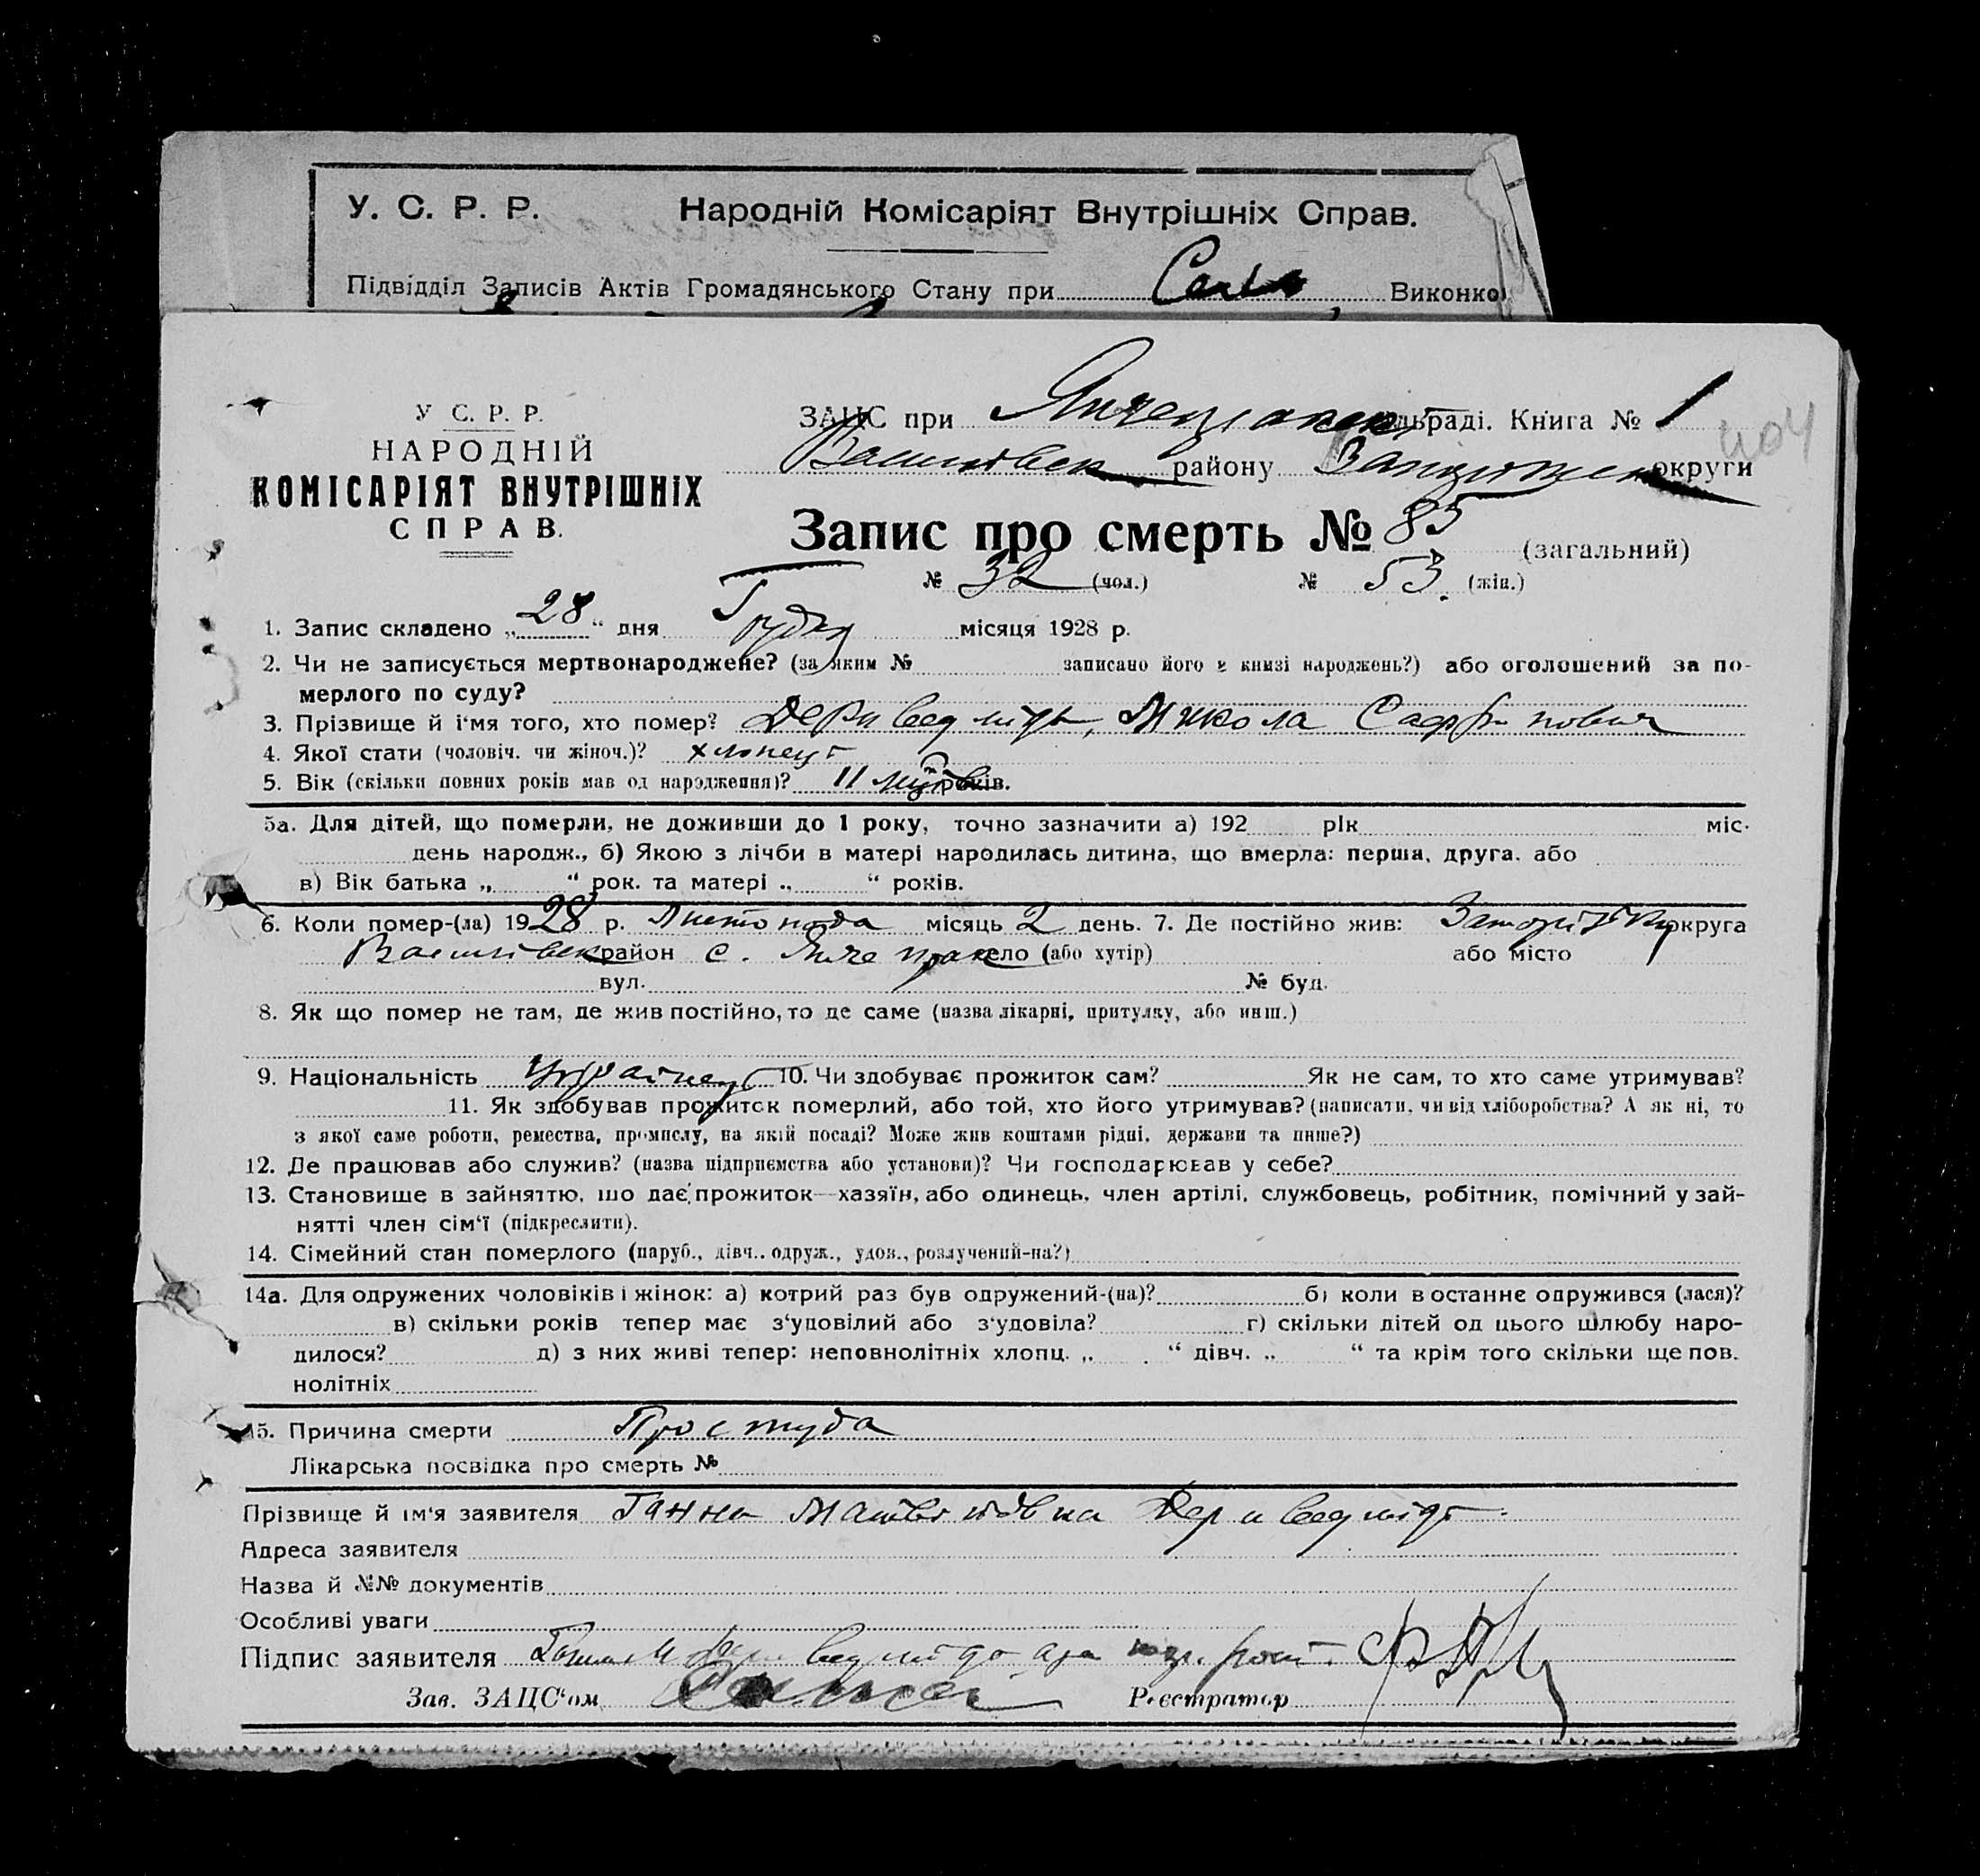 У. С. Р. Р. Народній Комісаріят Внутрішніх Справ.
Підвідділ Записів Актів Громадянського Стану при Виконко
У С. Р. Р.
НАРОДНІЙ
КОМІСАРІЯТ ВНУТРІШНІХ
СПРАВ.
ЗАЦС при сільраді. Книга № 1
404
Василівськ району Запорожськ округи
Запис про смерть № 85 (загальний)
№ 32 (чол.) № 53. (жін.)
1. Запис складено „28“ дня Грудня місяця 1928 р.
2. Чи не записується мертвонароджене? (за яким № записано його в книзі народжень?) або оголошений за по-
мерлого по суду?
3. Прізвище й і‘мя того, хто помер? Дериведмідь, Микола
4. Якої стати (чоловіч. чи жіноч.)? хлопець
5. Вік (скільки повних років мав од народження)? 11 років.
5а. Для дітей, що померли, не доживши до 1 року, точно зазначити а) 192 рік міс.
день народж., б) Якою з лічби в матері народилась дитина, що вмерла: перша, друга. або
в) Вік батька „ “ рок. та матері „ “ років.
6. Коли помер-(ла) 1928 р. Листопада місяць 2 день. 7. Де постійно жив: округа
Василівськ район с. село (або хутір) або місто
вул. № буд.
8. Як що помер не там, де жив постійно, то де саме (назва лікарні, притулку, або инш.)
9. Національність Українець 10. Чи здобуває прожиток сам? Як не сам, то хто саме утримував?
11. Як здобував прожиток померлий, або той, хто його утримував? (написати, чи від хліборобства? А як ні, то
з якої саме роботи, ремества, промислу, на якій посаді? Може жив коштами рідні, держави та инше?)
12. Де працював або служив? (назва підприємства або установи)? Чи господарював у себе?
13. Становище в зайняттю, що дає прожиток—хазяїн, або одинець, член артілі, службовець, робітник, помічний у зай-
нятті член сім‘ї (підкреслити).
14. Сімейний стан померлого (паруб., дівч.. одруж., удов., розлучений-на?)
14а. Для одружених чоловіків і жінок: а) котрий раз був одружений-(на)? б) коли в останнє одружився (лася)?
в) скільки років тепер має з‘удовілий або з‘удовіла? г) скільки дітей од цього шлюбу наро-
дилося? д) з них живі тепер: неповнолітніх хлопц. „ “ дівч. „ “ та крім того скільки ще пов.
нолітніх
15. Причина смерти Простуда
Лікарська посвідка про смерть №
Прізвище й ім‘я заявителя Ганна Матвіївна Дериведмідь.
Адреса заявителя
Назва й №№ документів
Особливі уваги
Підпис заявителя
Зав. ЗАЦС‘ом Реєстратор